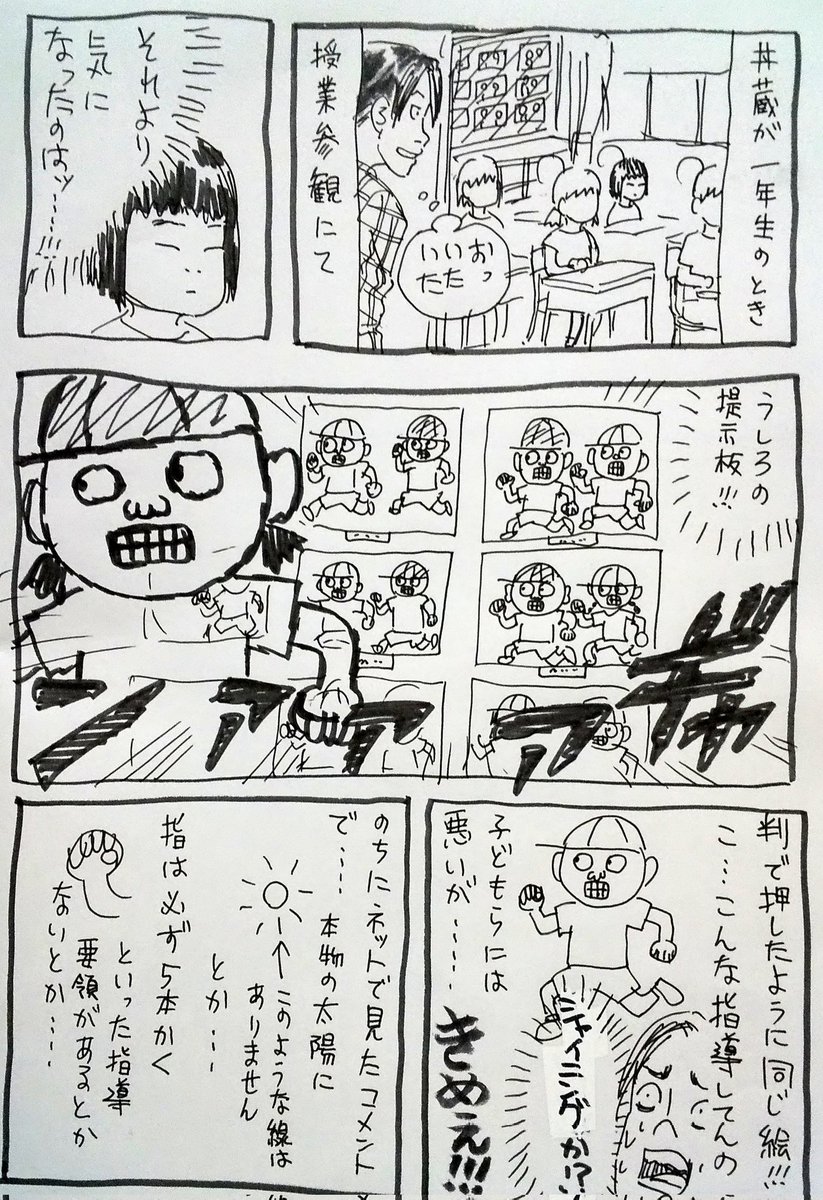 井蔵が一年生のとき
授業参観にて
おっ
いた
いた
それより
気に
なったのはッ……!!!
うしろの
掲示板!!!
ギャアアアン
判で押したように同じ絵!!!
こ…こんな指導してんの
子どもらには
悪いが……
シャイニングか!?
きめえ!!!
のちにネットで見たコメント
で…
本物の太陽に
←このような線は
ありません
とか…
指は必ず5本かく
といった指導
要領があるとか
ないとか…